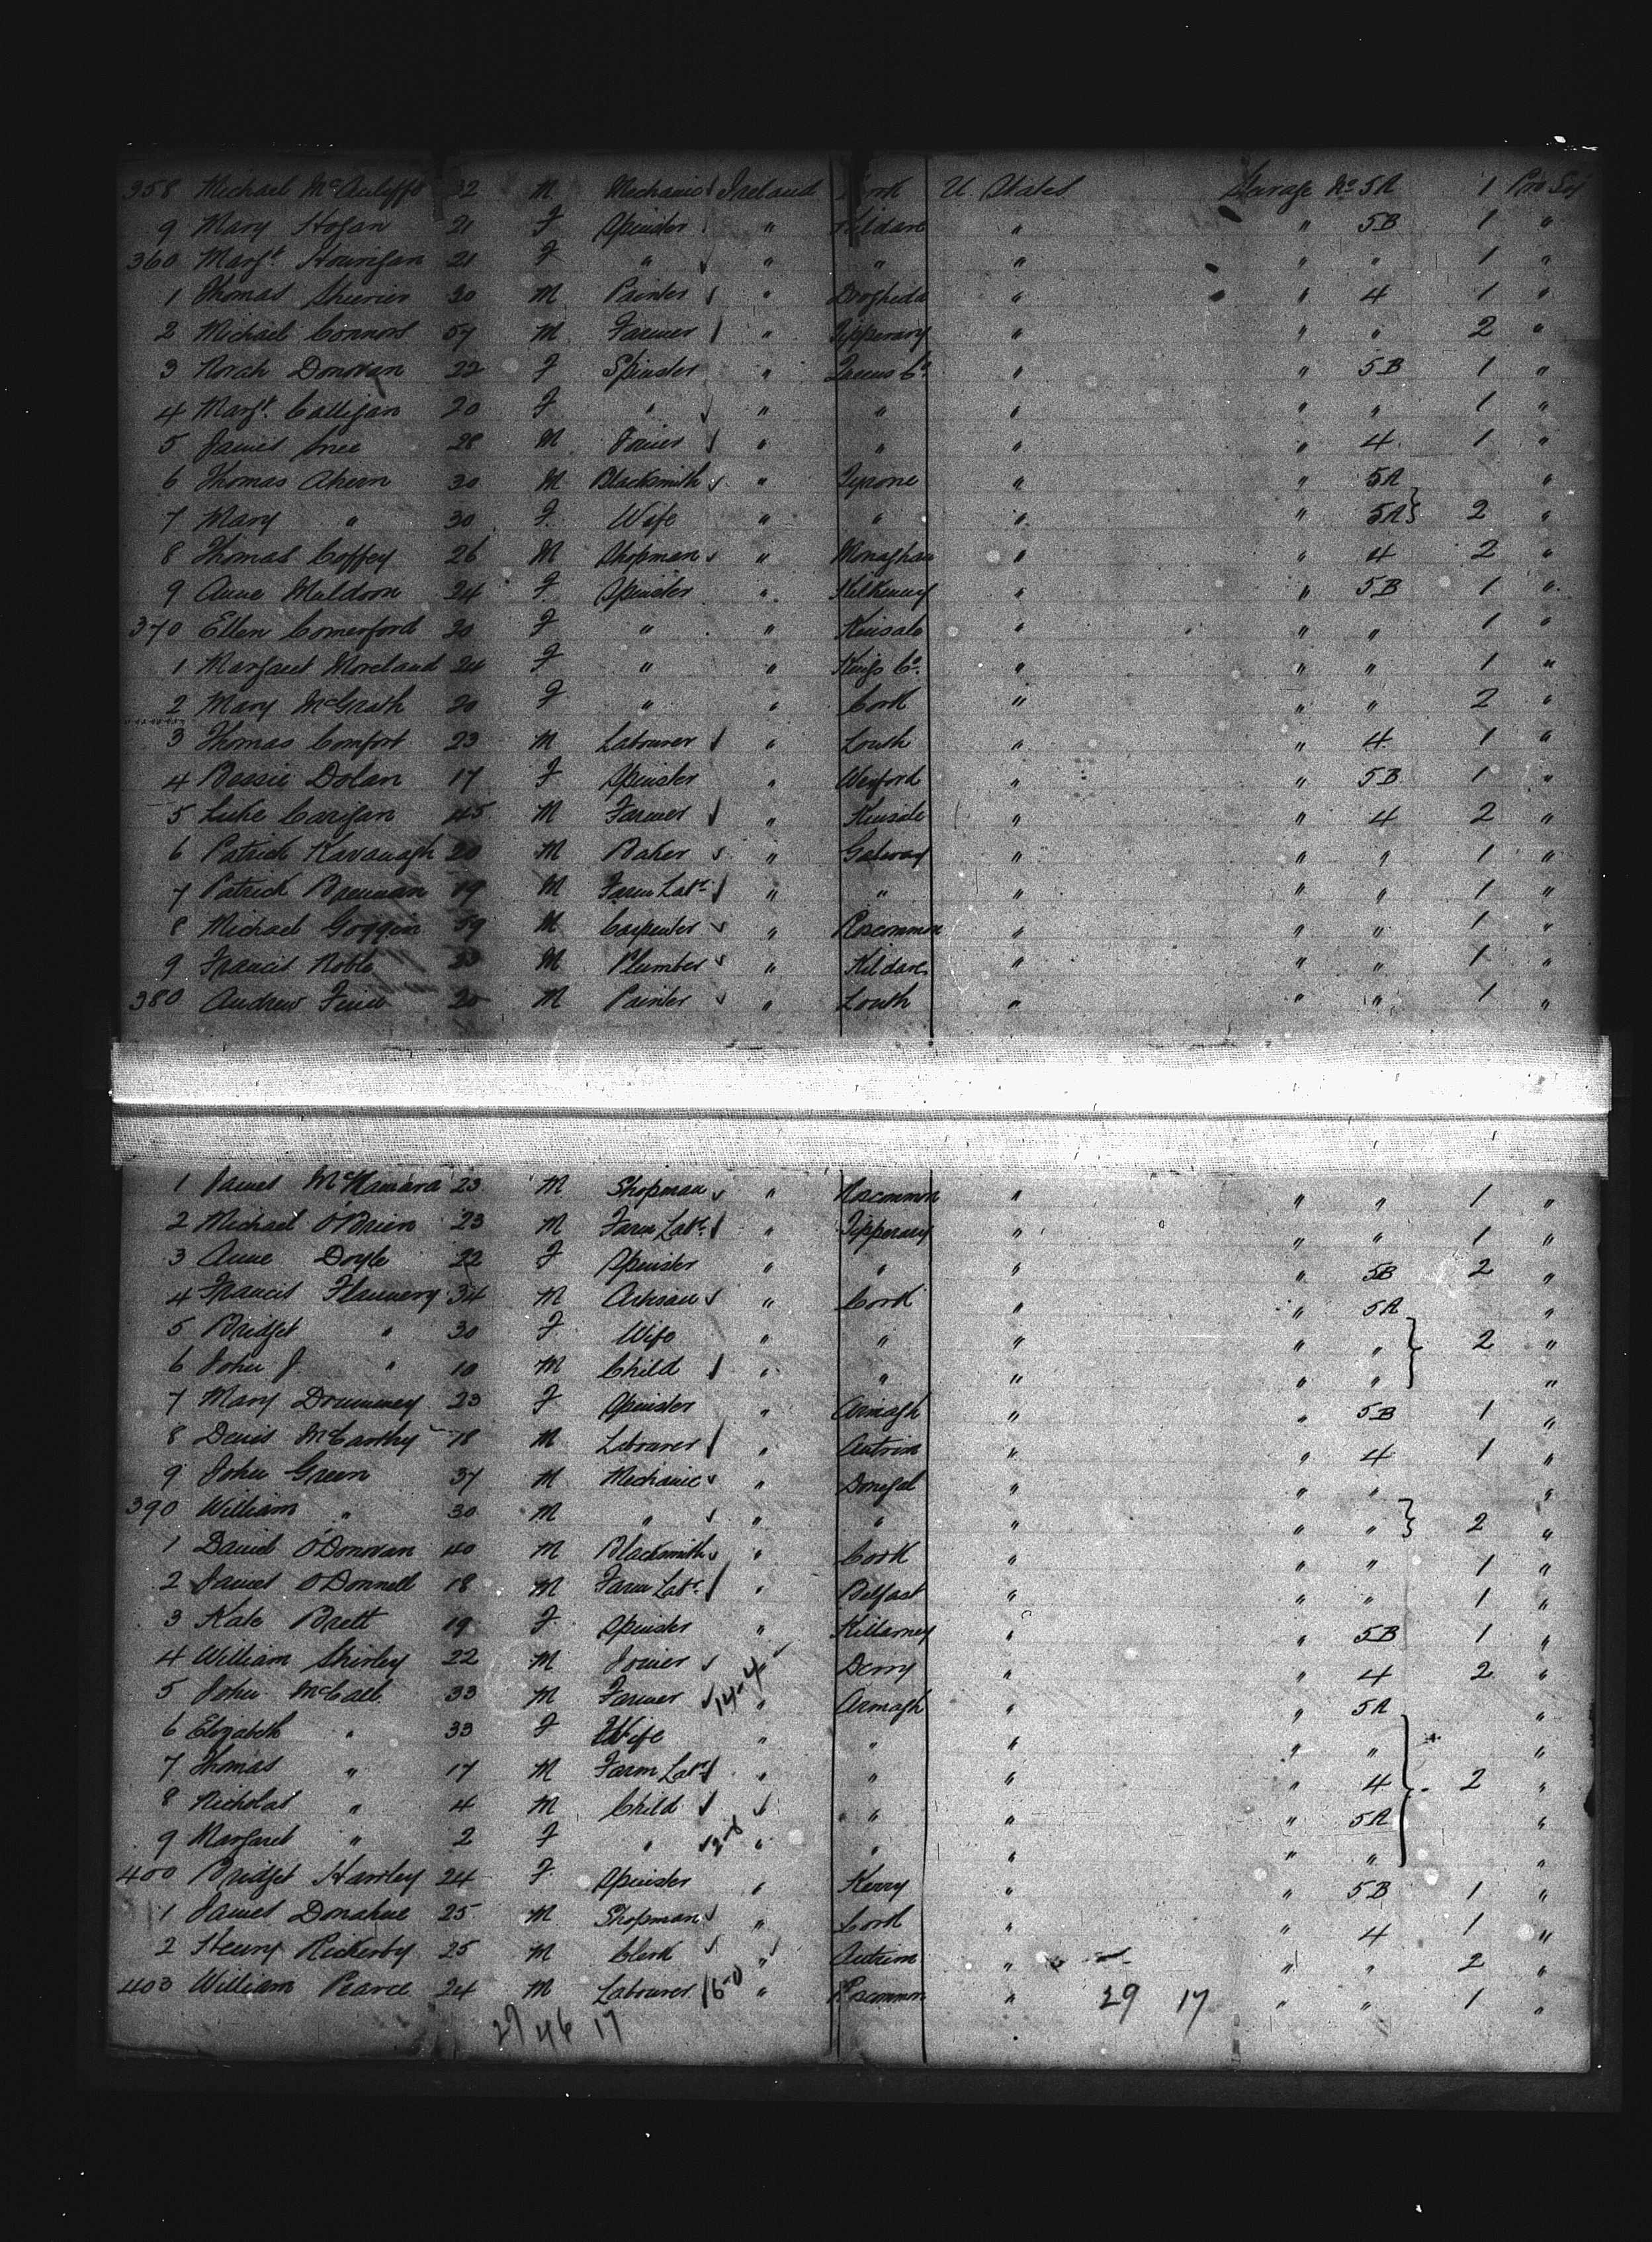 358 Michael McAuliffe 32 M Mechanic Ireland Cork U States Steerage No 5A 1 Pro Soj
9 Mary Hogan 21 F Spinster " Kildare " " 5B 1 "
360 Margt. Hourigan 21 F " " " " " " 1 "
1 Thomas 30 M Painter " Drogheda " " 4 1 "
2 Michael Connors 57 M Farmer " Tipperary " " " 2 "
3 Norah Donovan 22 F Spinster " Queens Co. " " 5B 1 "
4 Margt. Calligan 20 F " " " " " " 1 "
5 James 28 M Joiner " " " " 4 1 "
6 Thomas Ahern 30 M Blacksmith " Tyrone " " 5A "
7 Mary " 30 F Wife " " " " 5A } 2 "
8 Thomas Coffey 26 M Shopman " Monaghan " " 4 2 "
9 Anne Muldoon 24 F Spinster " Kilkenny " " 5B 1 "
370 Ellen Comerford 20 F " " Kinsale " " " 1 "
1 Margaret Moreland 24 F " " Kings Co. " " " 1 "
2 Mary McGrath 20 F " " Cork " " " 2 "
3 Thomas Comfort 23 M Labourer " Louth " " 4 1 "
4 Bessie Dolan 17 F Spinster " Wexford " " 5B 1 "
5 Luke Carigan 45 M Farmer " Kinsale " " 4 2 "
6 Patrick Kavanagh 20 M Baker " Galway " " " 1 "
7 Patrick Brennan 19 M Farm Labr. " " " " " 1 "
8 Michael Goggin 59 M Carpenter " Roscommon " " " 1 "
9 Francis Noble 33 M Plumber " Kildare " " " 1 "
380 Andrew 20 M Painter " Louth " " " 1 "
1 James McNamara 23 M Shopman " Roscommon " " " 1 "
2 Michael O'Brien 23 M Farm Labr. " Tipperary " " " 1 "
3 Anne Doyle 22 F Spinster " " " " 5B 2 "
4 Francis Flannery 34 M Artisan " Cork " " 5A "
5 Bridget " 30 F Wife " " " " " } 2 "
6 John J. " 10 M Child " " " " " "
7 Mary Drumney 23 F Spinster " Armagh " " 5B 1 "
8 Denis McCarthy 18 M Labourer " Antrim " " 4 1 "
9 John Green 37 M Mechanic " Donegal " " " "
390 William " 30 M " " " " " " } 2 "
1 Daniel O'Donovan 40 M Blacksmith " Cork " " " 1 "
2 James O'Donnell 18 M Farm Labr. " Belfast " " " 1 "
3 Kate Brett 19 F Spinster " Killarney " " 5B 1 "
4 William Shirley 22 M Joiner " Derry " " 4 2 "
5 John McCall 33 M Farmer 14-4 " Armagh " " 5A "
6 Elizabeth " 33 F Wife " " " " " "
7 Thomas " 17 M Farm Labr. " " " " 4 } 2 "
8 Nicholas " 4 M Child " " " 5A "
9 Margaret " 2 F " " " " " " "
400 Bridget Hartley 24 F Spinster " Kerry " " 5B 1 "
1 James Donahue 25 M Shopman " Cork " " 4 1 "
2 Henry Rickerby 25 M Clerk " Antrim " " " 2 "
403 William Pearce 24 M Labourer 16-0 " Roscommon " 29 17 " " 1 "
29 46 17